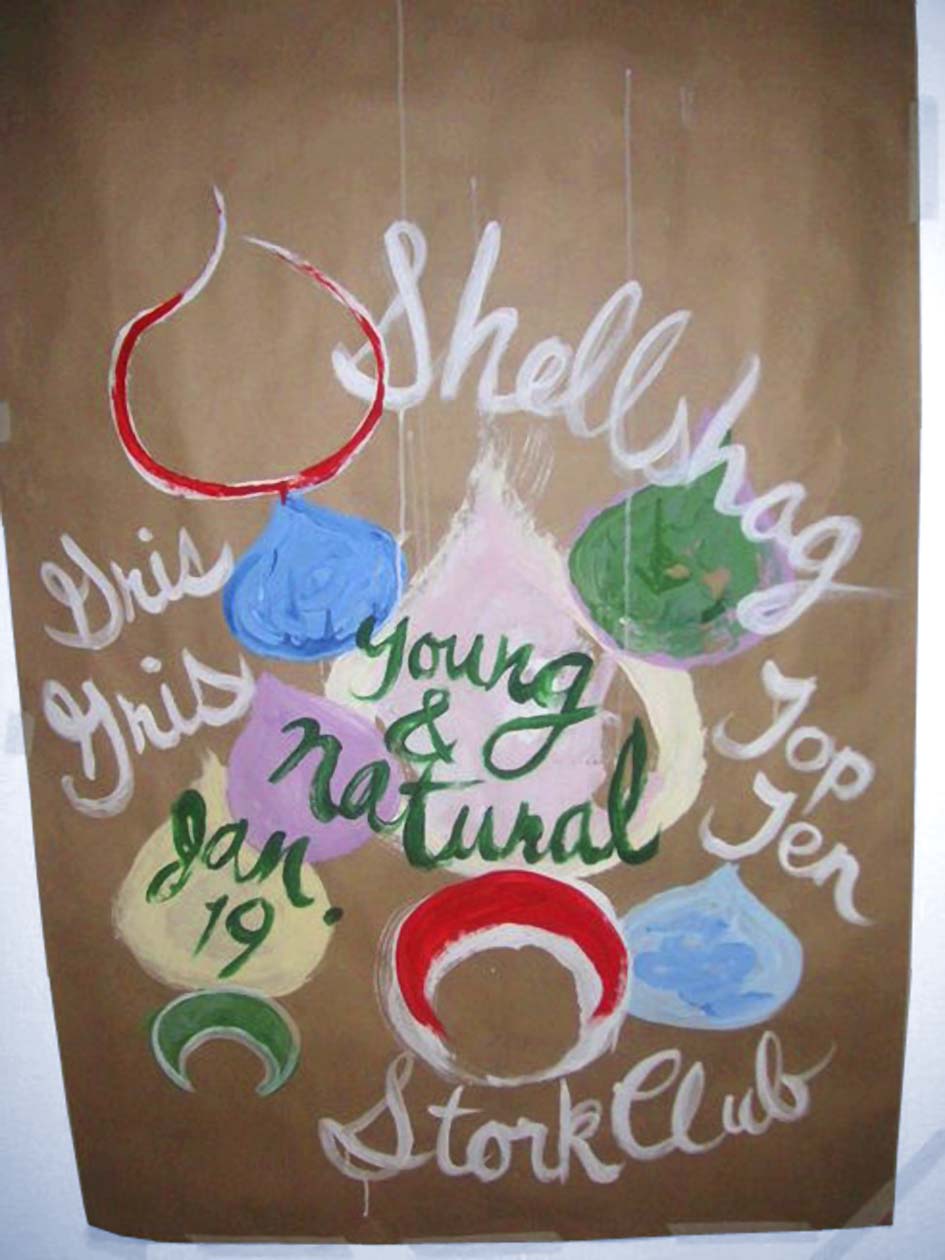 Shellshag
Gris
Gris
Young
&
Natural
Top
Ten
Jan.
19
Stork Club